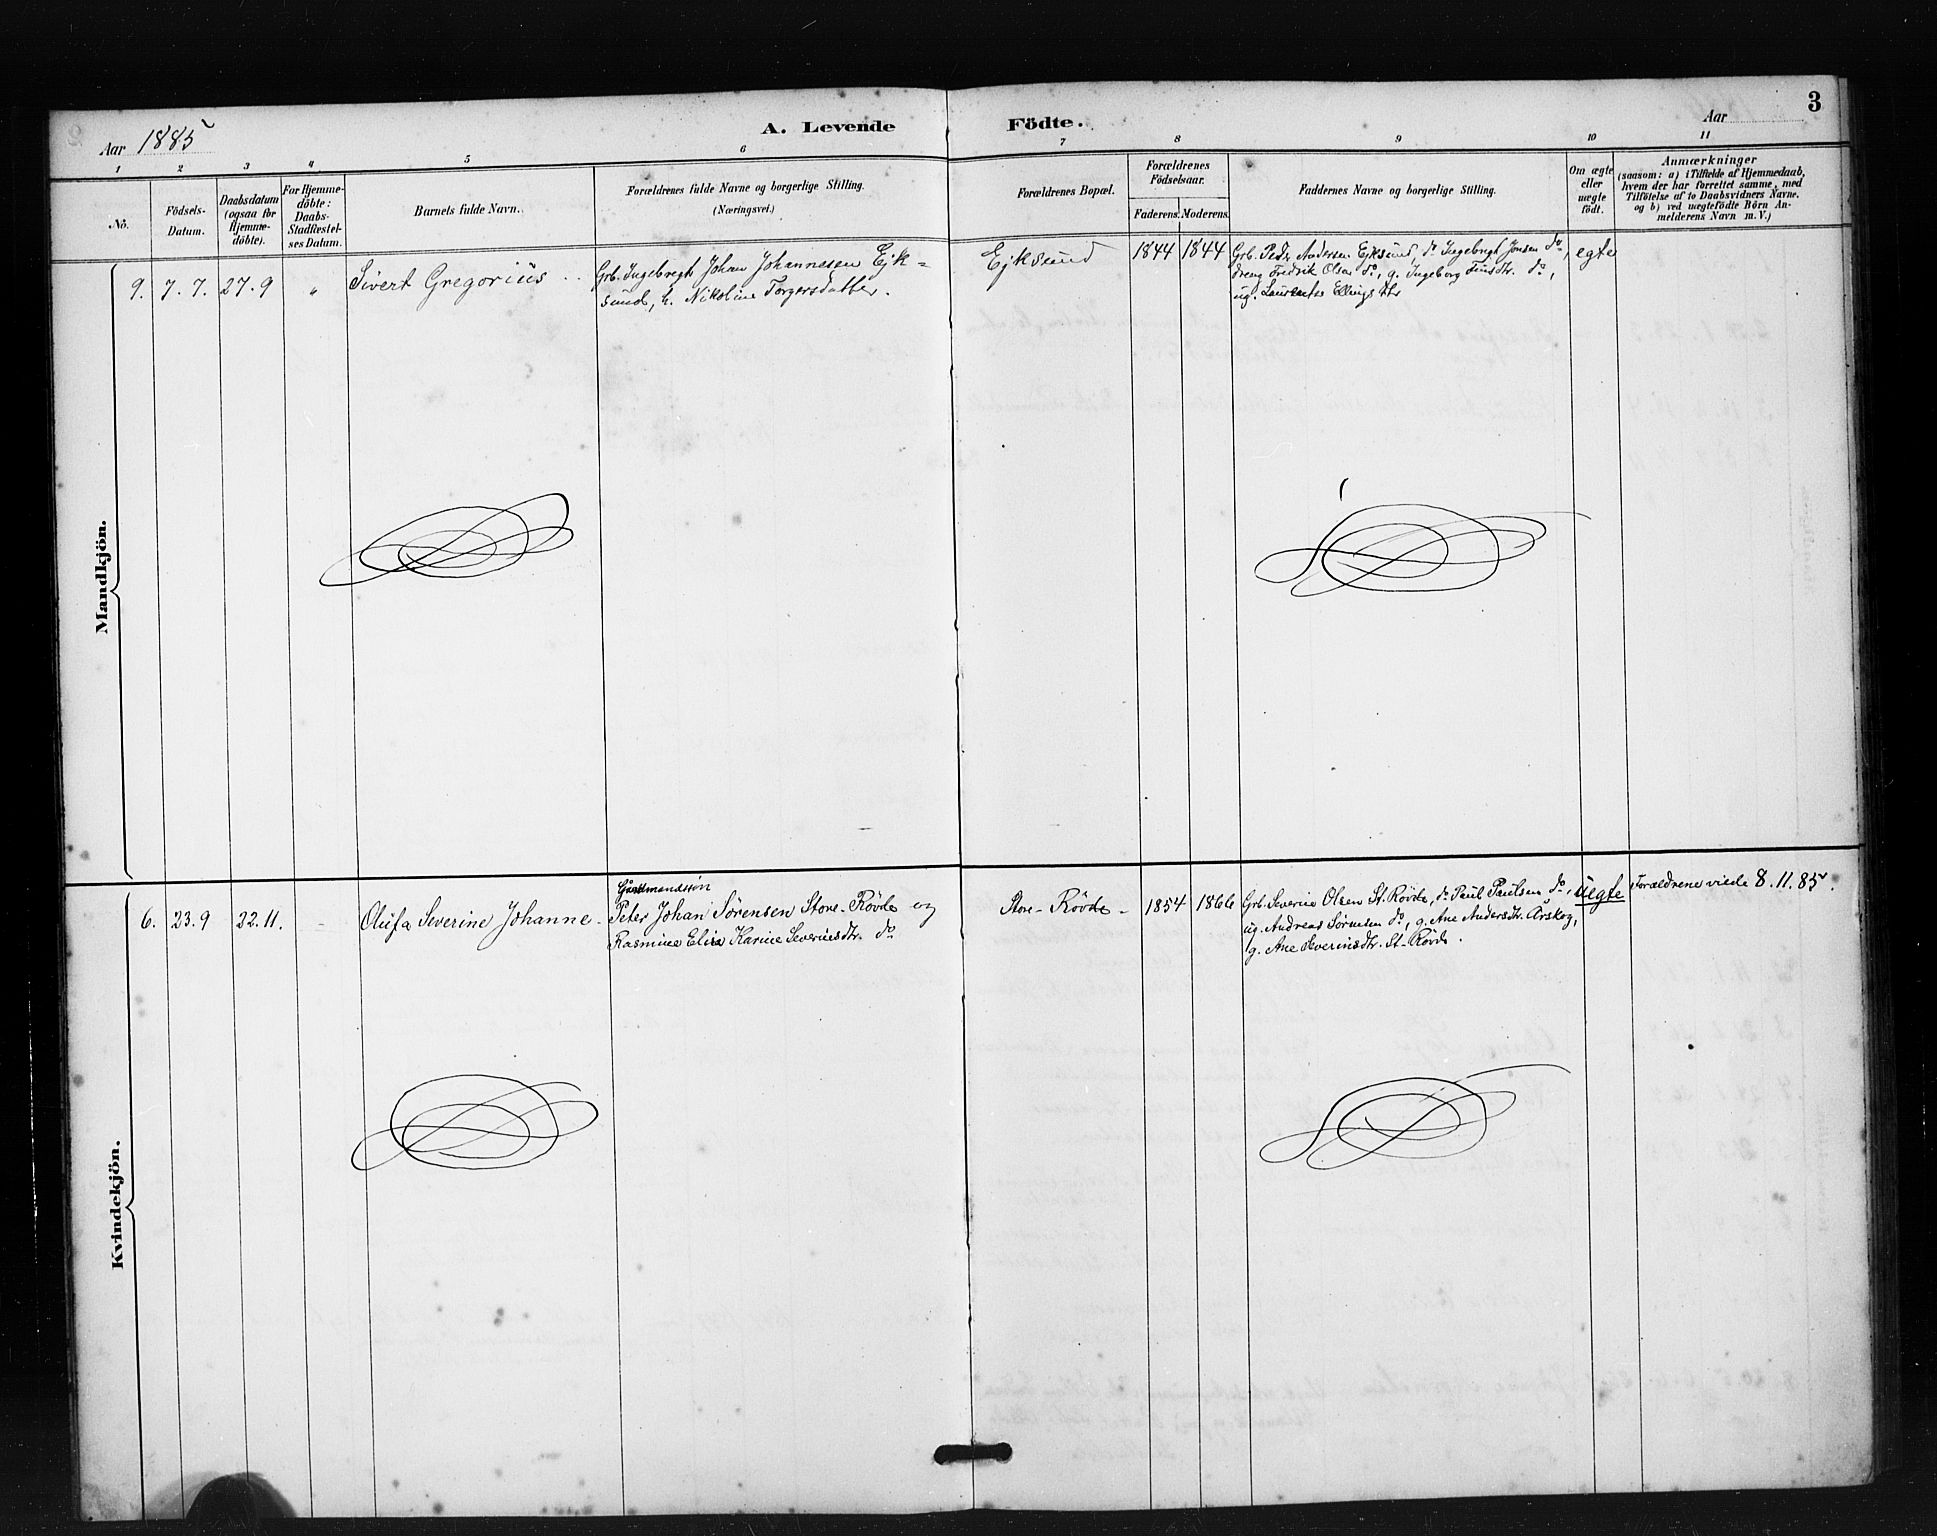 3
Aar 1885
A. Levende Födte.
Aar
1 2 3 4 5 6 7 8 9 10 11
No.
Födsels-
Datum.
Daabsdatum
(ogsaa for
Hjemme-
döbte).
For Hjemme-
döbte:
Daabs-
Stadfæstel-
ses Datum.
Barnets fulde Navn.
Forældrenes fulde Navne og borgerlige Stilling.
(Næringsvei.)
Forældrenes Bopæl.
Forældrenes
Födselsaar.
Faderens. Moderens.
Faddernes Navne og borgerlige Stilling.
Om ægte
eller
uægte
födt.
Anmærkninger
(saasom: a) i Tilfælde af Hjemmedaab,
hvem der har forrettet samme, med
Tilföielse af to Daabsvidners Navne.
og b) ved uægtefödte Börn An-
melderens Navn m. V.)
Mandkjön.
9. 7. 7. 27. 9 „ Sivert Gregorius
Grb. Ingebregt Johan Johannesen Ejk-
sund, h. Nikoline Torgersdatter.
Ejksund
1844 1844
Grb. Peder Andersen Ejksund, do Ingebregt Jonsen do,
dreng Fredrik Olsen do, g. Ingeborg Finsdtr. do,
ug. Laurentse Ellingsdtr
egte
Kvindekjön.
6. 23. 9 22. 11. - Olufa Severine Johanne
Gaardmandssön
Peter Johan Sörensen Store-Rövde og
Rasmine Elisa Karine Severinsdtr. do
Store-Rövde
1854 1866
Grb. Severin Olsen St. Rövde, do Paul Paulsen do,
ug. Andreas Sörensen do, g. Ane Andersdtr. Årskog,
g. Ane Severinsdtr. St-Rövde.
uegte
Forældrene viede 8. 11. 85.